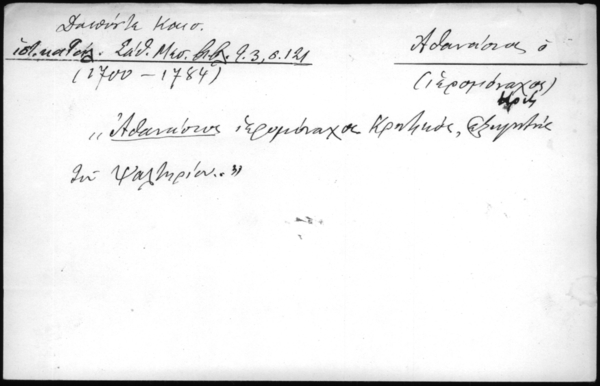 Δαπόντε Καισ.
ἱστ. κατάλ. Σάθ. Μεσ. Βιβλ. τ. 3, σ. 121
(1700 – 1784)
Ἀθανάσιος ὁ
(ἱερομόναχος)
Κρής
„Ἀθανάσιος ἱερομόναχος Κρητικός, ἐξηγητής
τοῦ Ψαλτηρίου..»